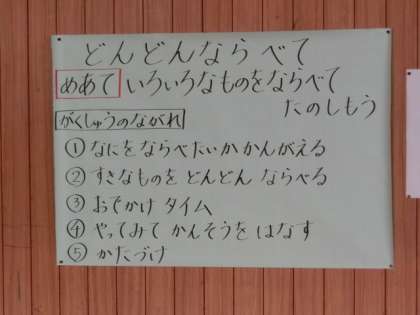 どんどんならべて
めあて いろいろなものをならべて
たのしもう
がくしゅうのながれ
① なにをならべたいかかんがえる
② すきなものを どんどん ならべる
③ おでかけ タイム
④ やってみて かんそうを はなす
⑤ かたづけ